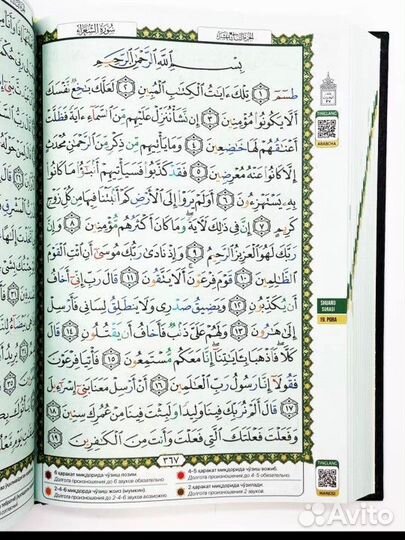 سُورَةُ الشُّعَرَاءِ
الجزء التاسع عشر
بِسْمِ ٱللَّهِ ٱلرَّحْمَٰنِ ٱلرَّحِيمِ
طسٓمٓ ١ تِلْكَ ءَايَٰتُ ٱلْكِتَٰبِ ٱلْمُبِينِ ٢ لَعَلَّكَ بَٰخِعٌ نَّفْسَكَ
أَلَّا يَكُونُوا۟ مُؤْمِنِينَ ٣ إِن نَّشَأْ نُنَزِّلْ عَلَيْهِم مِّنَ ٱلسَّمَآءِ ءَايَةً فَظَلَّتْ
أَعْنَٰقُهُمْ لَهَا خَٰضِعِينَ ٤ وَمَا يَأْتِيهِم مِّن ذِكْرٍ مِّنَ ٱلرَّحْمَٰنِ مُحْدَثٍ
إِلَّا كَانُوا۟ عَنْهُ مُعْرِضِينَ ٥ فَقَدْ كَذَّبُوا۟ فَسَيَأْتِيهِمْ أَنۢبَٰٓؤُا۟ مَا كَانُوا۟
بِهِۦ يَسْتَهْزِءُونَ ٦ أَوَلَمْ يَرَوْا۟ إِلَى ٱلْأَرْضِ كَمْ أَنۢبَتْنَا فِيهَا مِن كُلِّ زَوْجٍ
كَرِيمٍ ٧ إِنَّ فِى ذَٰلِكَ لَءَايَةً ۖ وَمَا كَانَ أَكْثَرُهُم مُّؤْمِنِينَ ٨ وَإِنَّ
رَبَّكَ لَهُوَ ٱلْعَزِيزُ ٱلرَّحِيمُ ٩ وَإِذْ نَادَىٰ رَبُّكَ مُوسَىٰٓ أَنِ ٱئْتِ ٱلْقَوْمَ
ٱلظَّٰلِمِينَ ١٠ قَوْمَ فِرْعَوْنَ ۚ أَلَا يَتَّقُونَ ١١ قَالَ رَبِّ إِنِّىٓ أَخَافُ
أَن يُكَذِّبُونِ ١٢ وَيَضِيقُ صَدْرِى وَلَا يَنطَلِقُ لِسَانِى فَأَرْسِلْ
إِلَىٰ هَٰرُونَ ١٣ وَلَهُمْ عَلَىَّ ذَنۢبٌ فَأَخَافُ أَن يَقْتُلُونِ ١٤ قَالَ
كَلَّا ۖ فَٱذْهَبَا بِـَٔايَٰتِنَآ ۖ إِنَّا مَعَكُم مُّسْتَمِعُونَ ١٥ فَأْتِيَا فِرْعَوْنَ
فَقُولَآ إِنَّا رَسُولُ رَبِّ ٱلْعَٰلَمِينَ ١٦ أَنْ أَرْسِلْ مَعَنَا بَنِىٓ إِسْرَٰٓءِيلَ
١٧ قَالَ أَلَمْ نُرَبِّكَ فِينَا وَلِيدًا وَلَبِثْتَ فِينَا مِنْ عُمُرِكَ سِنِينَ ١٨
وَفَعَلْتَ فَعْلَتَكَ ٱلَّتِى فَعَلْتَ وَأَنتَ مِنَ ٱلْكَٰفِرِينَ ١٩
٣٦٧
6 ҳаракат миқдорида чўзиш лозим.
Долгота произношения до 6 звуков обязательно.
4-5 ҳаракат миқдорида чўзиш вожиб.
Долгота произношения до 4-5 обязательно.
2-4-6 миқдорда чўзиш жоиз (мумкин).
Долгота произношения до 2-4-6 звуков возможно
2 ҳаракат миқдорида чўзилади.
Долгота произношения 2 звуков.
TINGLANG
ARABCHA
SHUARO
SURASI
19. PORA
TINGLANG
MANOSI
Avito